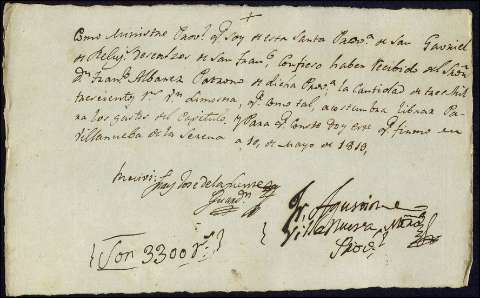 Como Ministro Prov.l q.e soy de esta Santa Prov.a de San Gavriel
de Relig.s Descalzos de San Fran.co, Confieso haber recibido del
D.n Fran.co Albarez Patrono de dicha Prov.a la Cantidad de tres mil
trescientos r.s v.n Limosna, q.e como tal acostumbra librar Pa
ra los gastos del Capitulo, y Para q.e Conste doy este q.e firmo en
Villanueba de la Serena a 10, de Mayo de 1819,
Fray Jose de la
Guard.n
Fr. Agustin de
Villanueva, Mtro
Prov.l
Son 3300 r.s